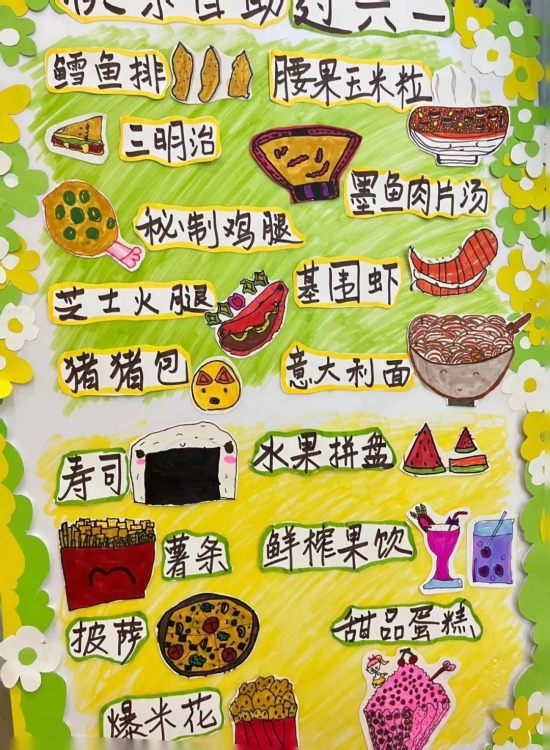 快乐自助过六一
鳕鱼排
腰果玉米粒
三明治
墨鱼肉片汤
秘制鸡腿
基围虾
芝士火腿
猪猪包
意大利面
寿司
水果拼盘
薯条
鲜榨果饮
披萨
甜品蛋糕
爆米花